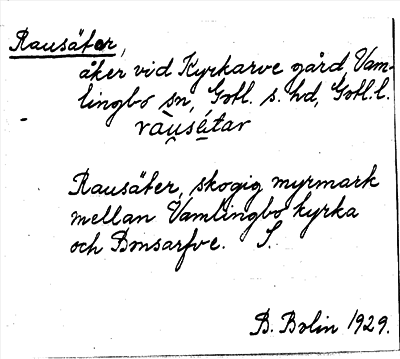 Rausäter,
åker vid Kyrkarve gård, Vam-
lingbo sn, Gotl. s. hd, Gotl. l.
ràu̯sétar
Rausäter, skogig myrmark
mellan Vamlingbo kyrka
och Bonsarfve. S.
B. Bolin 1929.